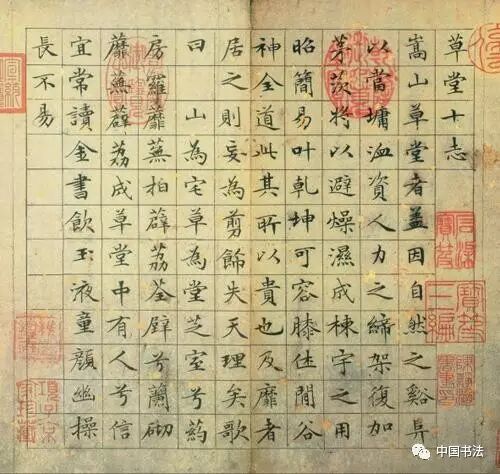 草堂十志
嵩山草堂者盖因自然之谿阜
以當墉洫資人力之締架復加
茅茨將以避燥濕成棟宇之用
昭簡易叶乾坤可容膝休閒谷
神全道此其所以貴也及靡者
居之則妄為剪飾失天理矣歌
曰 山為宅草為堂芝室兮葯
房羅蘼蕪拍薜荔荃壁兮蘭砌
蘼蕪薜荔成草堂中有人兮信
宜常讀金書飲玉液童顏幽操
長不易
石渠寶笈
寶笈三編
中国书法